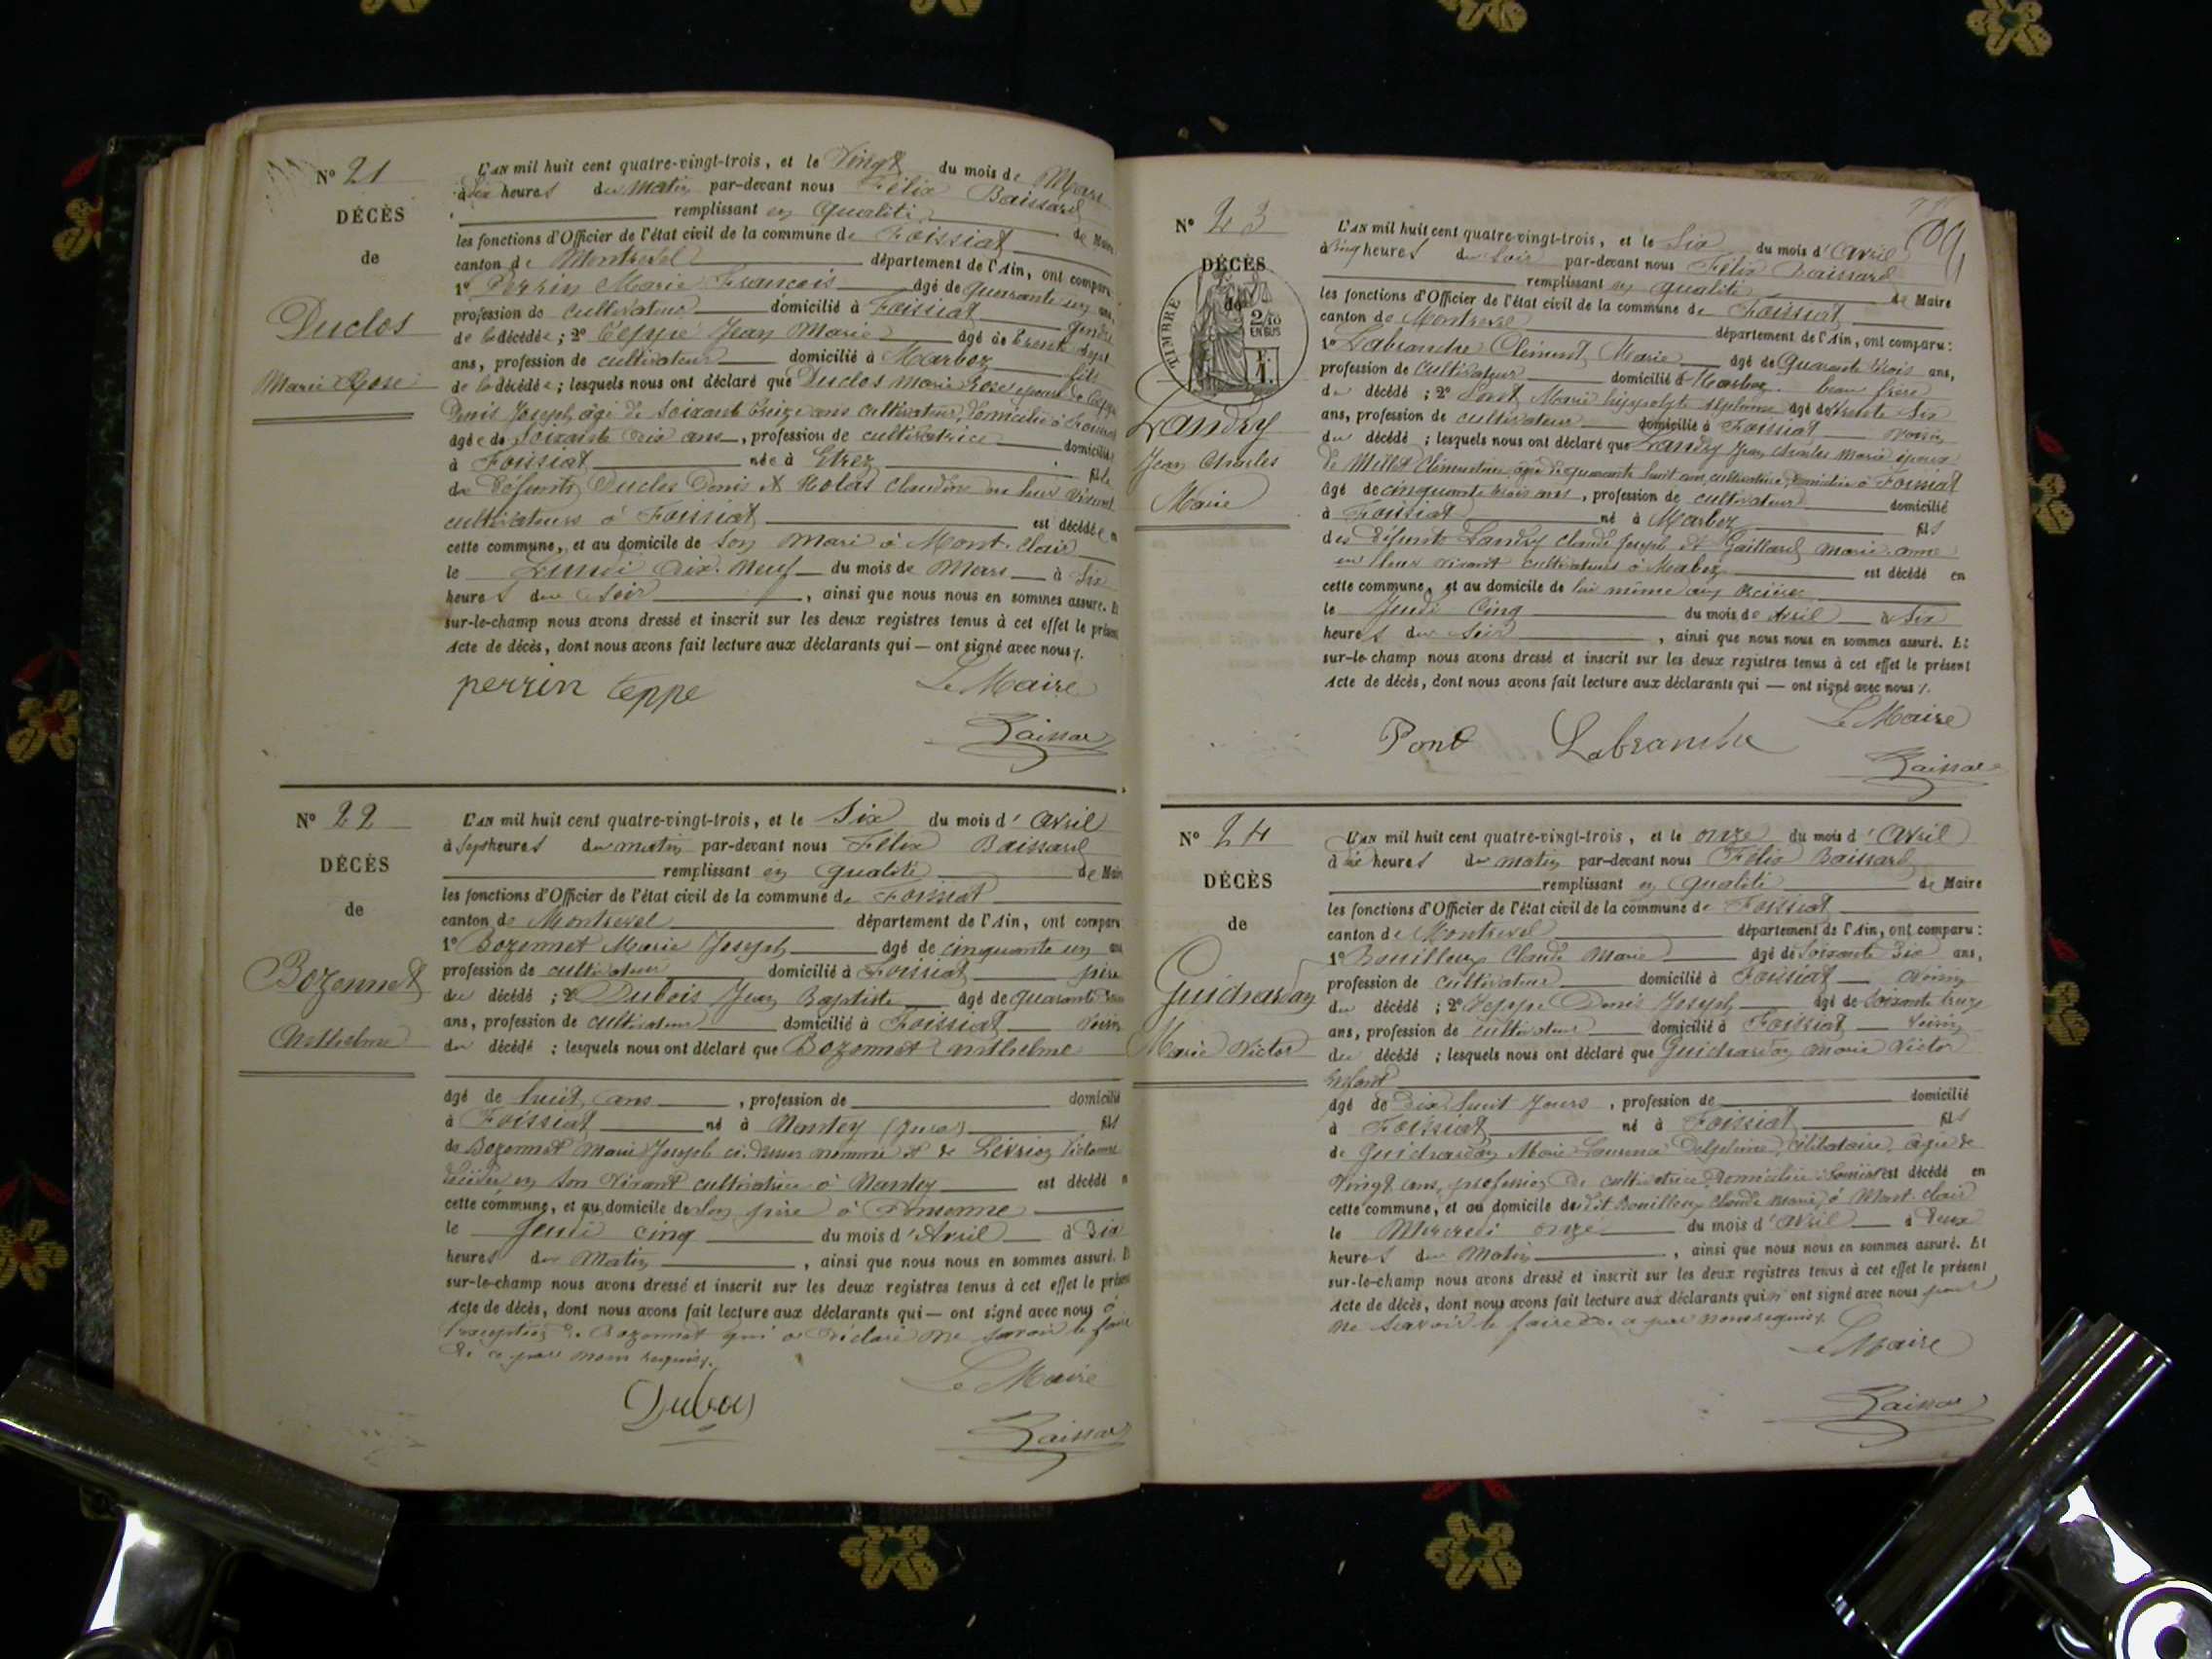 N° 21
DÉCÈS
de
Duclos
Marie Rose
L'AN mil huit cent quatre-vingt-trois, et le Vingt du mois de Mars
à Six heures du Matin par-devant nous Félix Baissard
remplissant en qualité de Maire
les fonctions d'Officier de l'état civil de la commune de Foissiat
canton de Montrevel département de l'Ain, ont comparu
1° Perrin Marie François âgé de quarante un ans,
profession de cultivateur domicilié à Foissiat gendre
de la décédée ; 2° Teppe Jean Marie âgé de trente sept
ans, profession de cultivateur domicilié à Marboz fils
de la décédée ; lesquels nous ont déclaré que Duclos Marie Rose épouse de Teppe
Denis Joseph, âgé de soixante treize ans cultivateur, domicilié à Foissiat
âgée de Soixante dix ans, profession de cultivatrice domiciliée
à Foissiat née à Etrez fille
de défunts Duclos Denis et Claudine en leur vivant
cultivateurs à Foissiat est décédée en
cette commune, et au domicile de son Mari à Mont-Clair
le Lundi dix-neuf du mois de Mars à Six
heures du Soir, ainsi que nous nous en sommes assuré. Et
sur-le-champ nous avons dressé et inscrit sur les deux registres tenus à cet effet le présent
Acte de décès, dont nous avons fait lecture aux déclarants qui — ont signé avec nous /.
perrin teppe Le Maire
Baissard
N° 22
DÉCÈS
de
Bozonnet
Anthelme
L'AN mil huit cent quatre-vingt-trois, et le Six du mois d'Avril
à Sept heures du matin par-devant nous Félix Baissard
remplissant en qualité de Maire
les fonctions d'Officier de l'état civil de la commune de Foissiat
canton de Montrevel département de l'Ain, ont comparu
1° Bozonnet Marie Joseph âgé de cinquante un ans
profession de cultivateur domicilié à Foissiat père
du décédé ; 2° Dubois Jean Baptiste âgé de quarante
ans, profession de cultivateur domicilié à Foissiat voisin
du décédé ; lesquels nous ont déclaré que Bozonnet Anthelme
âgé de huit ans, profession de domicilié
à Foissiat né à Nantey (Jura) fils
de Bozonnet Marie Joseph ci-dessus nommé et de
décédée en son vivant cultivatrice à Nantey est décédé en
cette commune, et au domicile de son père à
le Jeudi cinq du mois d'Avril à Dix
heures du Matin, ainsi que nous nous en sommes assuré. Et
sur-le-champ nous avons dressé et inscrit sur les deux registres tenus à cet effet le présent
Acte de décès, dont nous avons fait lecture aux déclarants qui — ont signé avec nous à
l'exception de Bozonnet qui a déclaré ne savoir le faire
de ce par nous requis /.
Dubois Le Maire
Baissard
N° 23
DÉCÈS
de
TIMBRE
2/10
EN SUS
Landry
Jean Charles
Marie
L'AN mil huit cent quatre-vingt-trois, et le Six du mois d'Avril
à Cinq heures du Soir par-devant nous Félix Baissard
remplissant en qualité de Maire
les fonctions d'Officier de l'état civil de la commune de Foissiat
canton de Montrevel département de l'Ain, ont comparu :
1° Labranche Clément Marie âgé de Quarante trois ans,
profession de Cultivateur domicilié à Marboz beau frère
du décédé ; 2° Pont Marie hippolyte Alphonse âgé de trente Six
ans, profession de cultivateur domicilié à Foissiat voisin
du décédé ; lesquels nous ont déclaré que Landry Jean Charles Marie époux
de Millet Clémentine, âgée de quarante huit ans, cultivatrice, domiciliée à Foissiat
âgé de cinquante trois ans, profession de cultivateur domicilié
à Foissiat né à Marboz fils
des défunts Landry Claude Joseph et Gaillard Marie Anne
en leur vivant cultivateurs à Marboz est décédé en
cette commune, et au domicile de lui même aux
le Jeudi Cinq du mois de Avril à Six
heures du Soir, ainsi que nous nous en sommes assuré. Et
sur-le-champ nous avons dressé et inscrit sur les deux registres tenus à cet effet le présent
Acte de décès, dont nous avons fait lecture aux déclarants qui — ont signé avec nous /.
Pont Labranche Le Maire
Baissard
N° 24
DÉCÈS
de
Guichardon
Marie Victor
L'AN mil huit cent quatre-vingt-trois, et le onze du mois d'Avril
à dix heures du matin par-devant nous Félix Baissard
remplissant en qualité de Maire
les fonctions d'Officier de l'état civil de la commune de Foissiat
canton de Montrevel département de l'Ain, ont comparu :
1° Bouilloux Claude Marie âgé de Soixante Six ans,
profession de cultivateur domicilié à Foissiat voisin
du décédé ; 2° Teppe Denis Joseph âgé de Soixante treize
ans, profession de cultivateur domicilié à Foissiat voisin
du décédé ; lesquels nous ont déclaré que Guichardon Marie Victor
Enfant
âgé de Dix huit Jours, profession de domicilié
à Foissiat né à Foissiat fils
de Guichardon Marie Laurence Delphine, célibataire, âgée de
Vingt ans, profession de cultivatrice domiciliée à Foissiat est décédé en
cette commune, et au domicile de dit Bouilloux Claude Marie à Mont-clair
le Mercredi onze du mois d'Avril à Deux
heures du Matin, ainsi que nous nous en sommes assuré. Et
sur-le-champ nous avons dressé et inscrit sur les deux registres tenus à cet effet le présent
Acte de décès, dont nous avons fait lecture aux déclarants qui n'ont signé avec nous pour
ne savoir le faire de ce par nous requis /.
Le Maire
Baissard